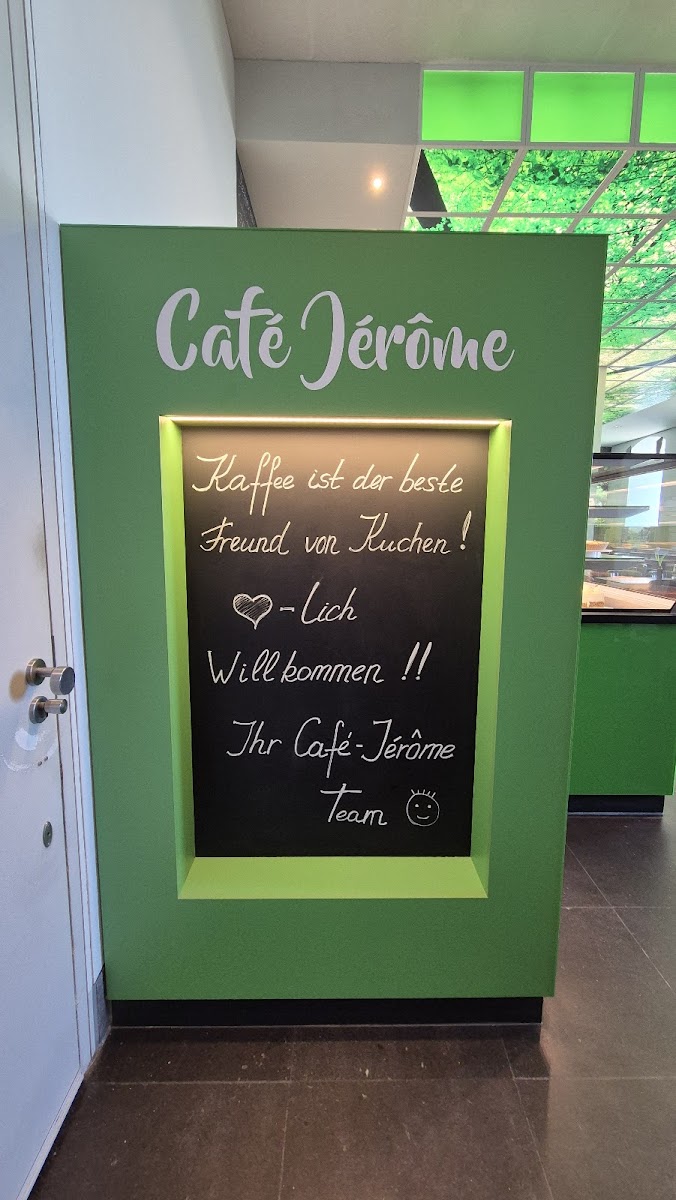 Café Jérôme
Kaffee ist der beste
Freund von Kuchen!
♡-lich
Willkommen !!
Ihr Café-Jérôme
Team ☺